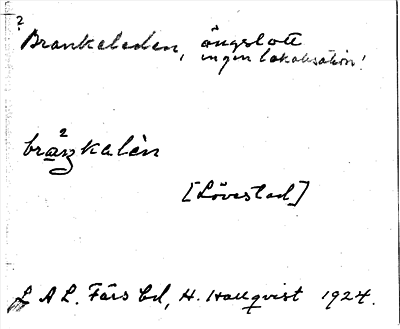 ?
Brankeleden, ängslott
ingen lokalisation!
2
braŋkalèn
[Lövestad]
L A L. Färs hd, H. Hallqvist 1924.